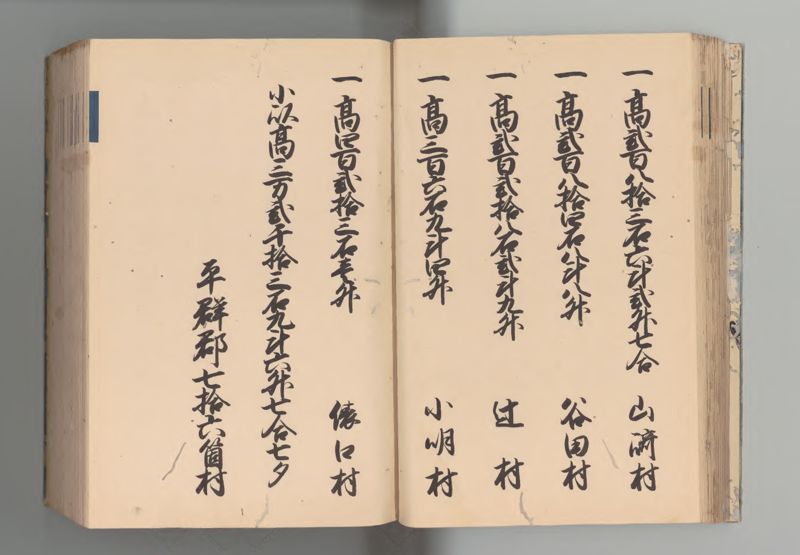 一高弐百八拾三石六斗弐升七合 山﨑村
一高弐百八拾四石八斗八升 谷田村
一高弐百弐拾八石弐斗九升 辻村
一高三百六石九斗四升 小明村
一高四百弐拾三石壱升 俵口村
小以高三万弐千拾三石九斗六升七合七夕
平群郡七拾六箇村